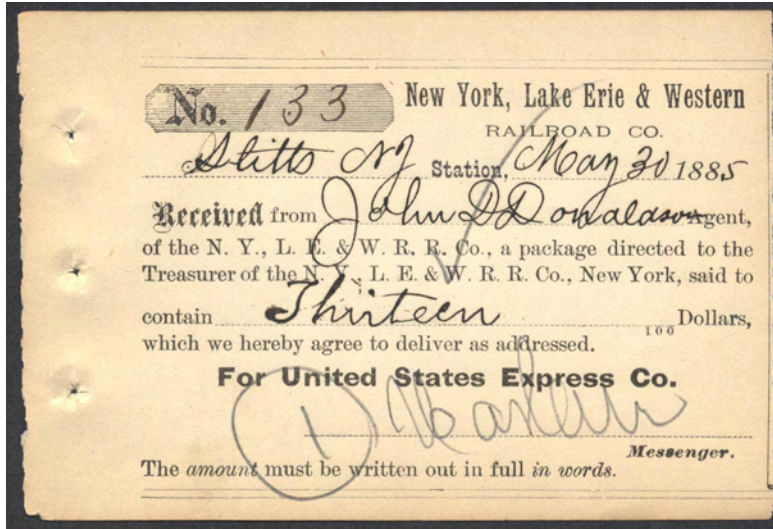 No. 133
New York, Lake Erie & Western
RAILROAD CO.
Stitts NJ Station, May 30 1885
Received from John D Donaldson Agent,
of the N. Y., L. E. & W. R. R. Co., a package directed to the
Treasurer of the N. Y., L. E. & W. R. R. Co., New York, said to
contain Thirteen 100 Dollars,
which we hereby agree to deliver as addressed.
For United States Express Co.
1
Messenger.
The amount must be written out in full in words.